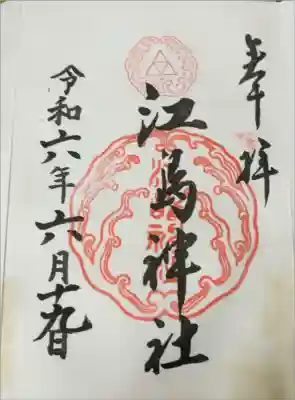 奉拝
江島神社
令和六年六月十九日